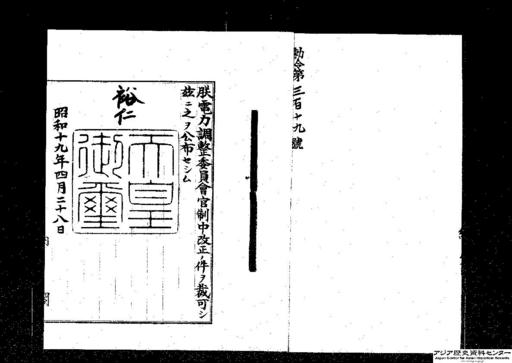 勅令第三百十九號
朕電力調整委員會官制中改正ノ件ヲ裁可シ
茲ニ之ヲ公布セシム
裕仁
天皇御璽
昭和十九年四月二十八日
内閣
アジア歴史資料センター
Japan Center for Asian Historical Records